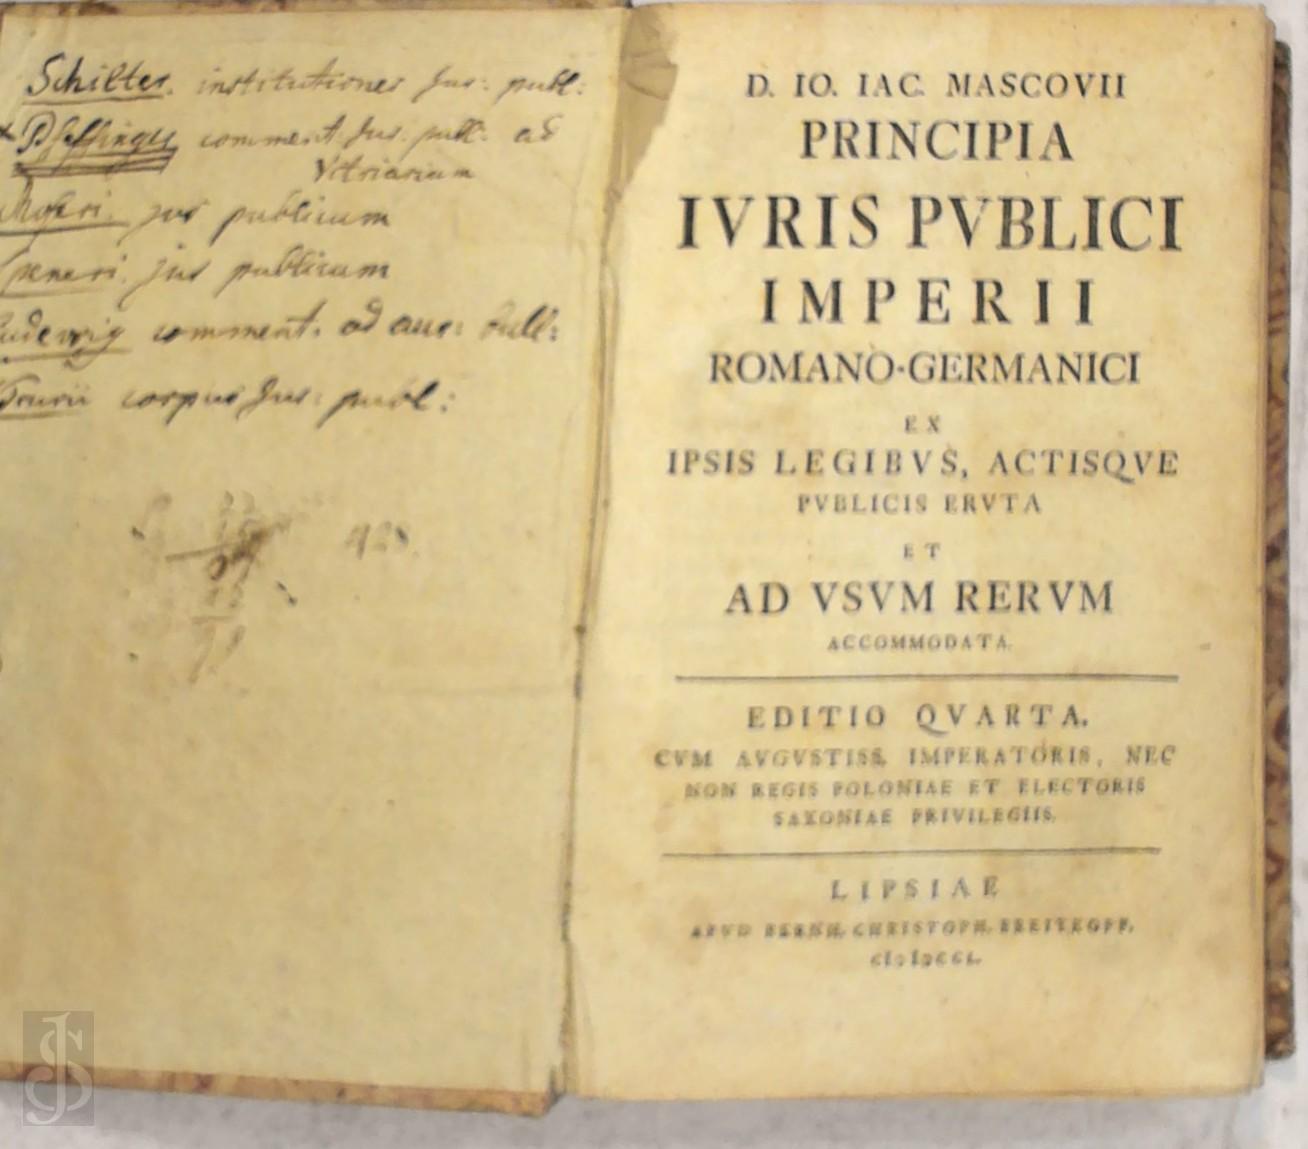 Schilter. institutiones Jur: publ:
Pfeffinger comment. Jur. publ: ad
Vitriarium
Moseri. jus publicum
jus publicum
Ludewig comment. ad aur: bull:
corpus Jur: publ:
D. IO. IAC. MASCOVII
PRINCIPIA
IVRIS PVBLICI
IMPERII
ROMANO-GERMANICI
EX
IPSIS LEGIBVS, ACTISQVE
PVBLICIS ERVTA
ET
AD VSVM RERVM
ACCOMMODATA.
EDITIO QVARTA.
CVM AVGVSTISS. IMPERATORIS, NEC
NON REGIS POLONIAE ET ELECTORIS
SAXONIAE PRIVILEGIIS.
LIPSIAE
APVD BERNH. CHRISTOPH. BREITKOPF.